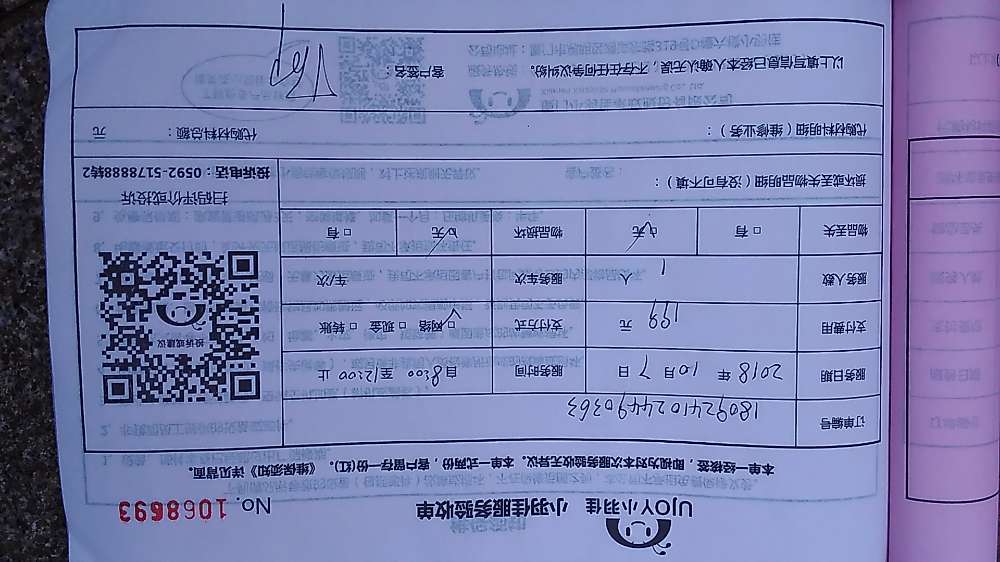 UJOY小羽佳 小羽佳服务验收单 No. 1068693
本单一经核签,即视为对本次服务验收无异议。本单一式两份,客户留存一份(红)。《维保须知》详见背面。
订单编号 1809241024490363
服务日期 2018 年 10 月 7 日 服务时间 自 8:00 至 12:00 止
支付费用 199 元 支付方式 网络 现金 转账
服务人数 1 人 服务车次 车/次
物品丢失 有 无 物品损坏 有 无
投诉或建议
扫码评价或投诉
投诉电话:0592-5178888转2
损坏或丢失物品明细(没有可不填):
代购材料明细(维修业务): 代购材料总额: 元
以上填写信息已经本人确认无误,不存在任何争议纠纷。 客户签名: